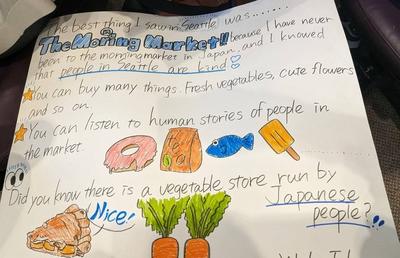 The best thing I saw in Seattle was.......
The Morning Market!! because I have never
been to the morning market in Japan, and I knowed
that people in Seattle are kind!
You can buy many things. Fresh vegetables, cute flowers
and so on.
You can listen to human stories of people in
the market.
Did you know there is a vegetable store run by
Japanese
people?
Nice!